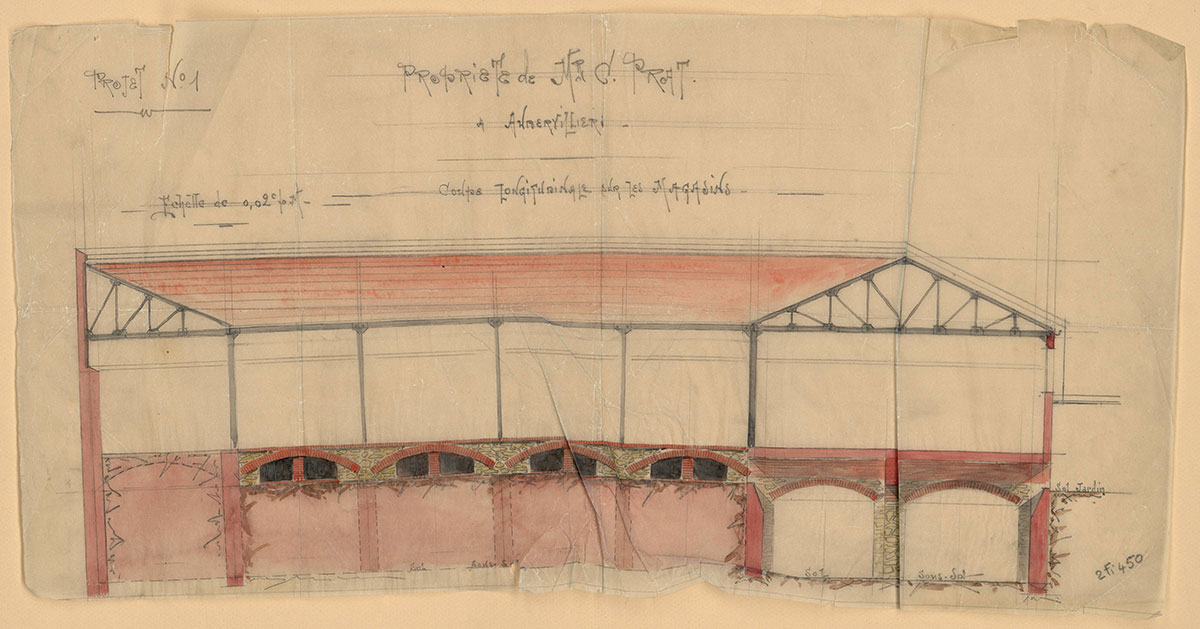 PROJET No 1
PROPRIETE de Mr C. PRAT.
A AUBERVILLIERS -
Echelle de 0,02c p. M -
COUPE LONGITUDINALE sur les MAGASINS -
Sol Jardin
Sol
Sous-Sol
Sol
Sous-Sol
2 Fi 450